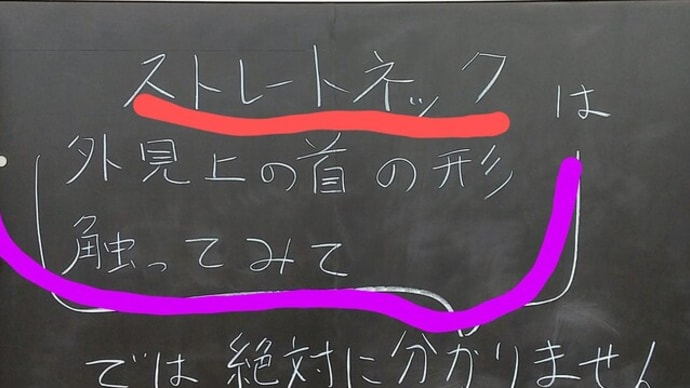 ストレートネック は
外見上の首の形
触ってみて
では 絶対に分かりません